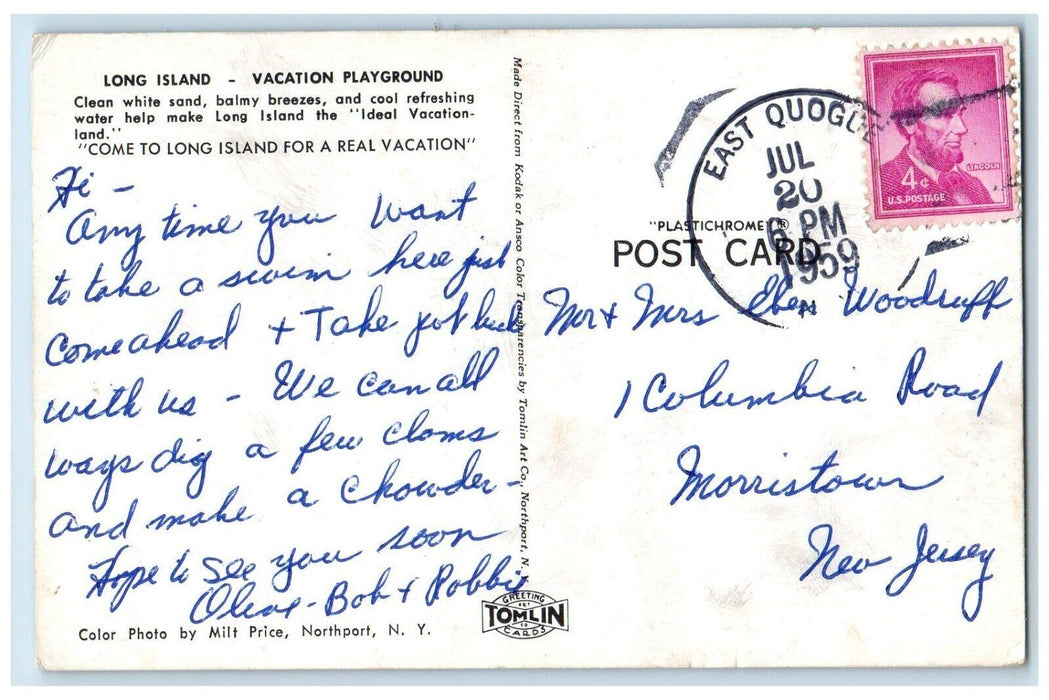 LONG ISLAND - VACATION PLAYGROUND
Clean white sand, balmy breezes, and cool refreshing
water help make Long Island the "Ideal Vacation-
land."
"COME TO LONG ISLAND FOR A REAL VACATION"
Hi -
Any time you want
to take a swim here just
come ahead + Take pot luck
with us - We can all
ways dig a few clams
and make a chowder -
Hope to see you soon
Olive - Bob + Robbie
Color Photo by Milt Price, Northport, N. Y.
Made Direct from Kodak or Ansco Color Transparencies by Tomlin Art Co., Northport, N. Y.
GREETING
ART
TOMLIN
CO
CARDS
"PLASTICHROME" ®
POST CARD
EAST QUOGUE
JUL
20
6 PM
1959
N
LINCOLN
4¢
U.S. POSTAGE
Mr + Mrs Eben Woodruff
1 Columbia Road
Morristown
New Jersey